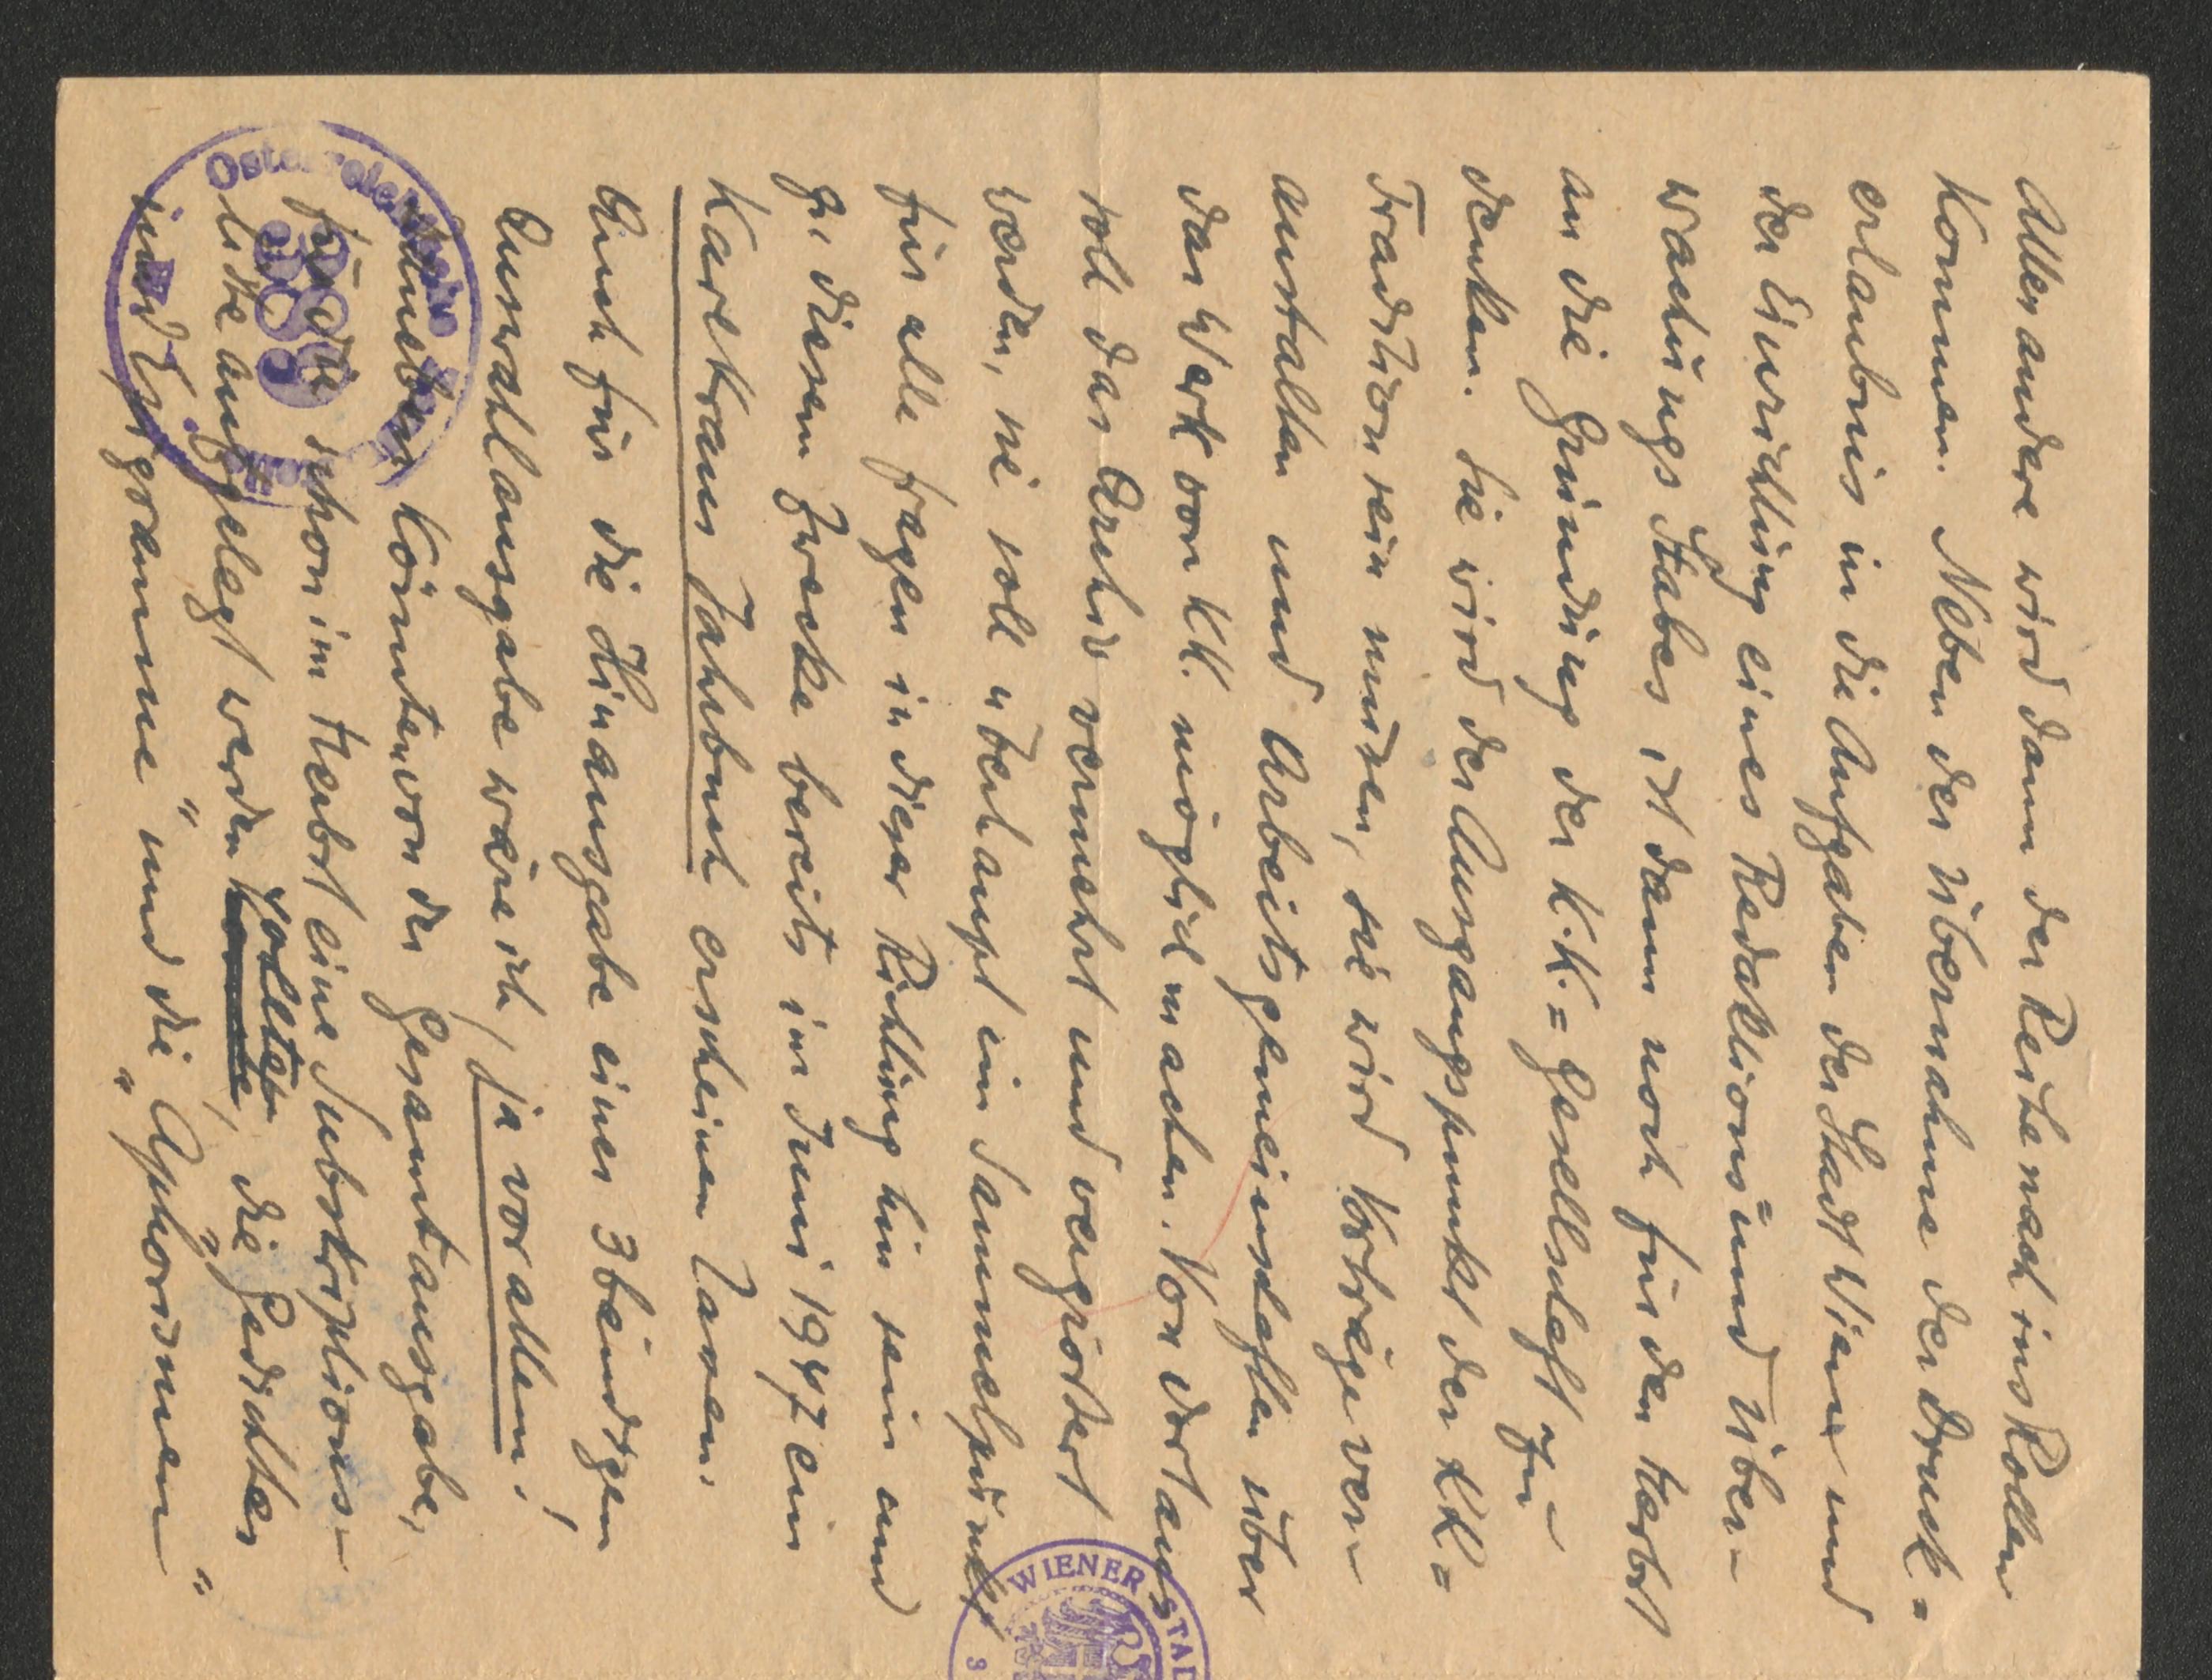 Alles andere wird dann der Reihe nach ins Rollen
kommen. Neben der Übernahme der Druck=
erlaubnis in die Aufgaben der Stadt Wien und
der Einrichtung eines Redaktions= und Über-
wachungsstabes ist dann noch für den Herbst
an die Gründung der K.K.=Gesellschaft zu-
denken. Sie wird der Ausgangspunkt der KK=
Tradition sein müssen, sie wird Vorträge ver-
anstalten und Arbeitsgemeinschaften über
das Werk von KK. möglich machen. Von dort aus
soll das Archiv vermehrt und vergrößert
werden, sie soll überhaupt ein Sammelpunkt
für alle Fragen in dieser Richtung hin sein und
zu diesem Zwecke bereits im Juni 1947 ein
Karl Kraus Jahrbuch erscheinen lassen.
Auch für die Herausgabe einer 3 bändigen
Auswahlausgabe wäre ich, ja vor allem!
Daneben könnten von der Gesamtausgabe,
für die schon im Herbst eine Subskriptions-
liste aufgelegt werden könnte, sollten, die „Gedichte"
und „Epigramme" und die „Aphorismen"
WIENER STAD